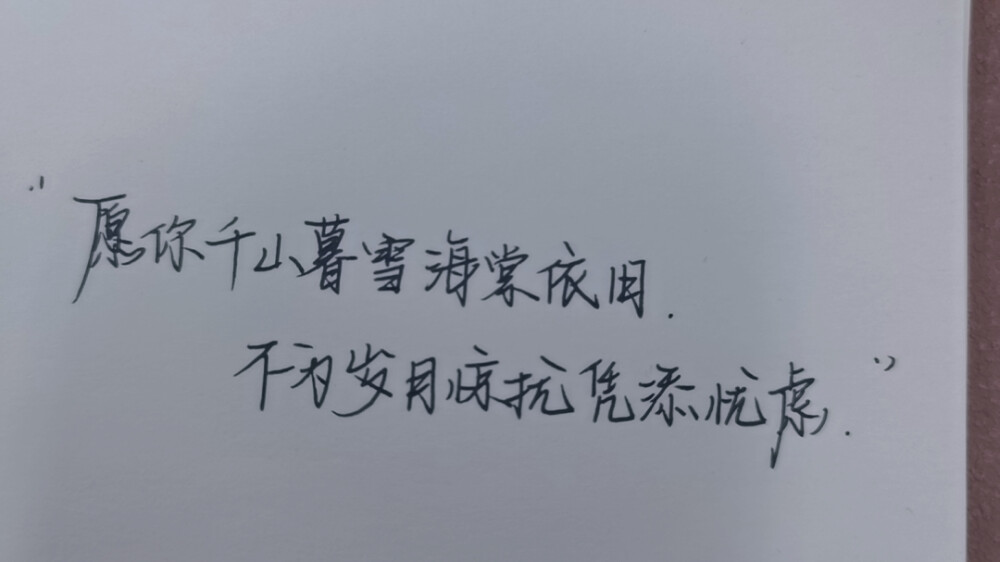 "愿你千山暮雪海棠依旧.
不为岁月惊扰凭添忧虑."